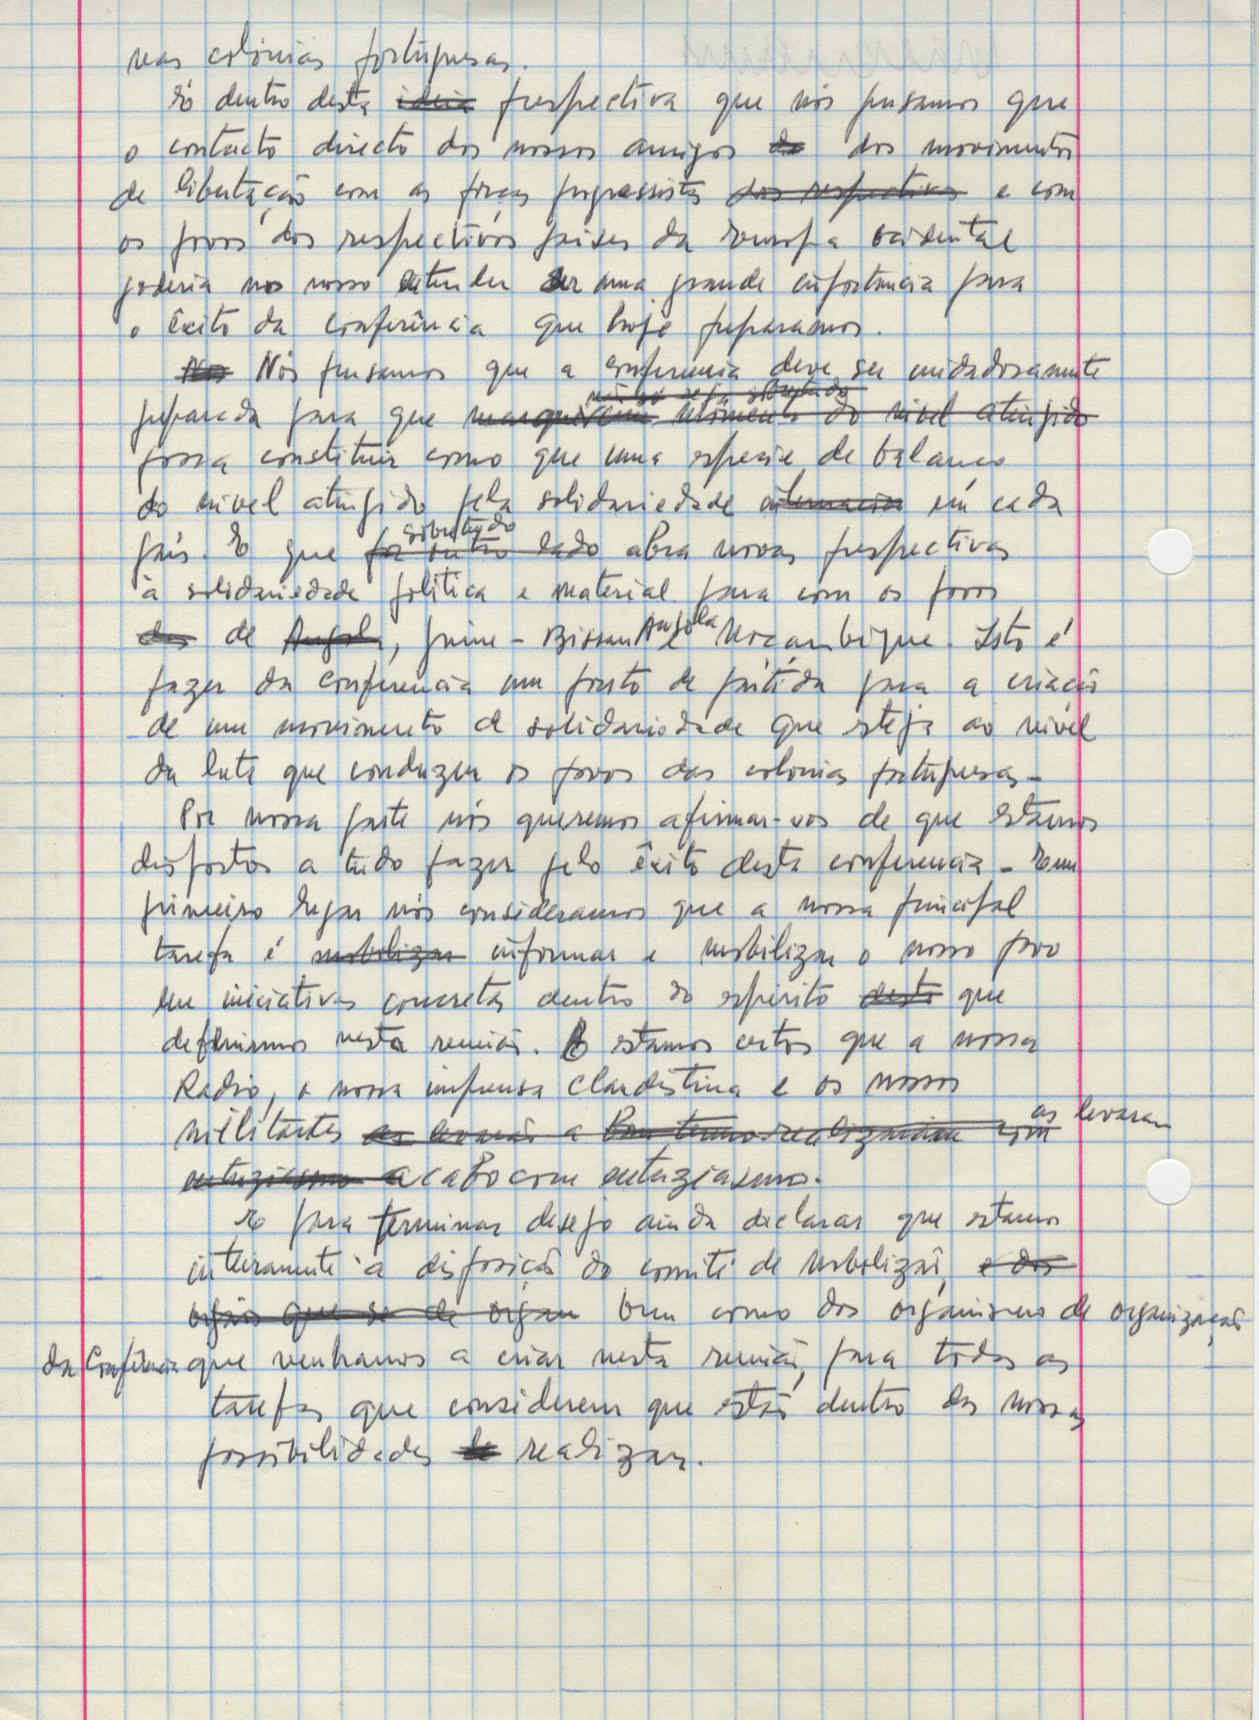 nas colónias portuguesas.
É dentro desta ideia perspectiva que nós pensamos que
o contacto directo dos nossos amigos do dos movimentos
de libertação com as forças progressistas dos respectivos e com
os povos dos respectivos países da Europa ocidental
poderia no nosso entender ser uma grande importancia para
o êxito da conferência que hoje preparamos.
Nos Nós pensamos que a conferencia deve ser cuidadosamente
não só seja sobretudo
preparada para que do nivel atingido
possa constituir como que uma especie de balanco
do nivel atingido pela solidariedade internacion em cada
sobretudo
país. E que por outro lado abra novas perspectivas
à solidariedade politica e material para com os povos
das de Angola, Guine-Bissau Angola e Moçambique. Isto é
fazer da conferencia um ponto de partida para a criação
de um movimento de solidariedade que esteja ao nivel
da luta que conduzem os povos das colonias portuguesas-
Por nossa parte nós queremos afirmar-vos de que estamos
dispostos a tudo fazer pelo êxito desta conferencia - Em
primeiro lugar nós consideramos que a nossa principal
tarefa é mobilizar informar e mobilizar o nosso povo
em iniciativas concretas dentro do espirito deste que
definirmos nesta reunião. E estamos certos que a nossa
Radio, a nossa imprensa clandestina e os nossos
militantes as levarão a com as levaram
entuziasmo a cabo com entuziasmo.
E para terminar desejo ainda declarar que estamos
inteiramente à disposição do comité de mobilização, e dos
orgãos que se de organ bem como dos organismos de organização
da Conferência que venhamos a criar nesta reunião, para todas as
tarefas que considerem que estão dentro das nossas
possibilidades de realizar.